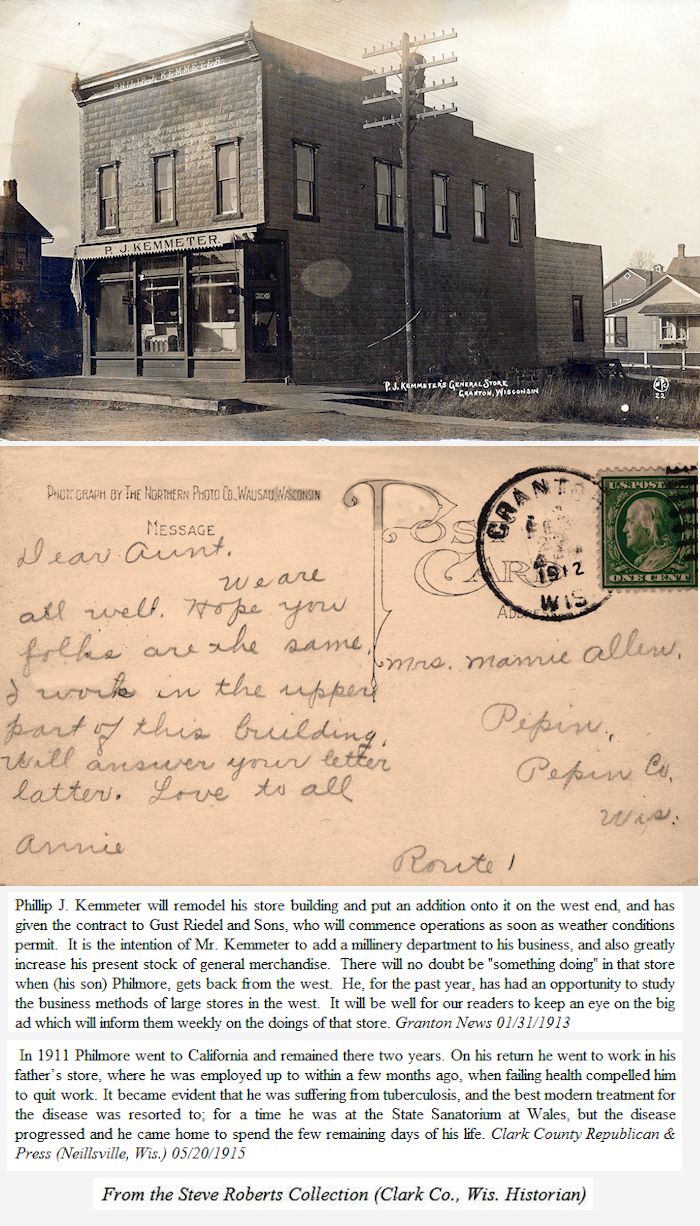 PHILIP J. KEMMETER
P. J. KEMMETER.
P. J. KEMMETER'S GENERAL STORE
GRANTON, WISCONSIN
22
PHOTOGRAPH BY THE NORTHERN PHOTO CO., WAUSAU, WISCONSIN
POST CARD
MESSAGE
ADDRESS
GRANTON
1912
WIS
U.S. POST
ONE CENT
Dear Aunt.
We are
all well. Hope you
folks are the same.
I work in the upper
part of this building.
Will answer your letter
latter. Love to all
Annie
Mrs. Mamie Allen.
Pepin,
Pepin Co,
Wis.
Route 1
Phillip J. Kemmeter will remodel his store building and put an addition onto it on the west end, and has
given the contract to Gust Riedel and Sons, who will commence operations as soon as weather conditions
permit. It is the intention of Mr. Kemmeter to add a millinery department to his business, and also greatly
increase his present stock of general merchandise. There will no doubt be "something doing" in that store
when (his son) Philmore, gets back from the west. He, for the past year, has had an opportunity to study
the business methods of large stores in the west. It will be well for our readers to keep an eye on the big
ad which will inform them weekly on the doings of that store. Granton News 01/31/1913
In 1911 Philmore went to California and remained there two years. On his return he went to work in his
father's store, where he was employed up to within a few months ago, when failing health compelled him
to quit work. It became evident that he was suffering from tuberculosis, and the best modern treatment for
the disease was resorted to; for a time he was at the State Sanatorium at Wales, but the disease
progressed and he came home to spend the few remaining days of his life. Clark County Republican &
Press (Neillsville, Wis.) 05/20/1915
From the Steve Roberts Collection (Clark Co., Wis. Historian)